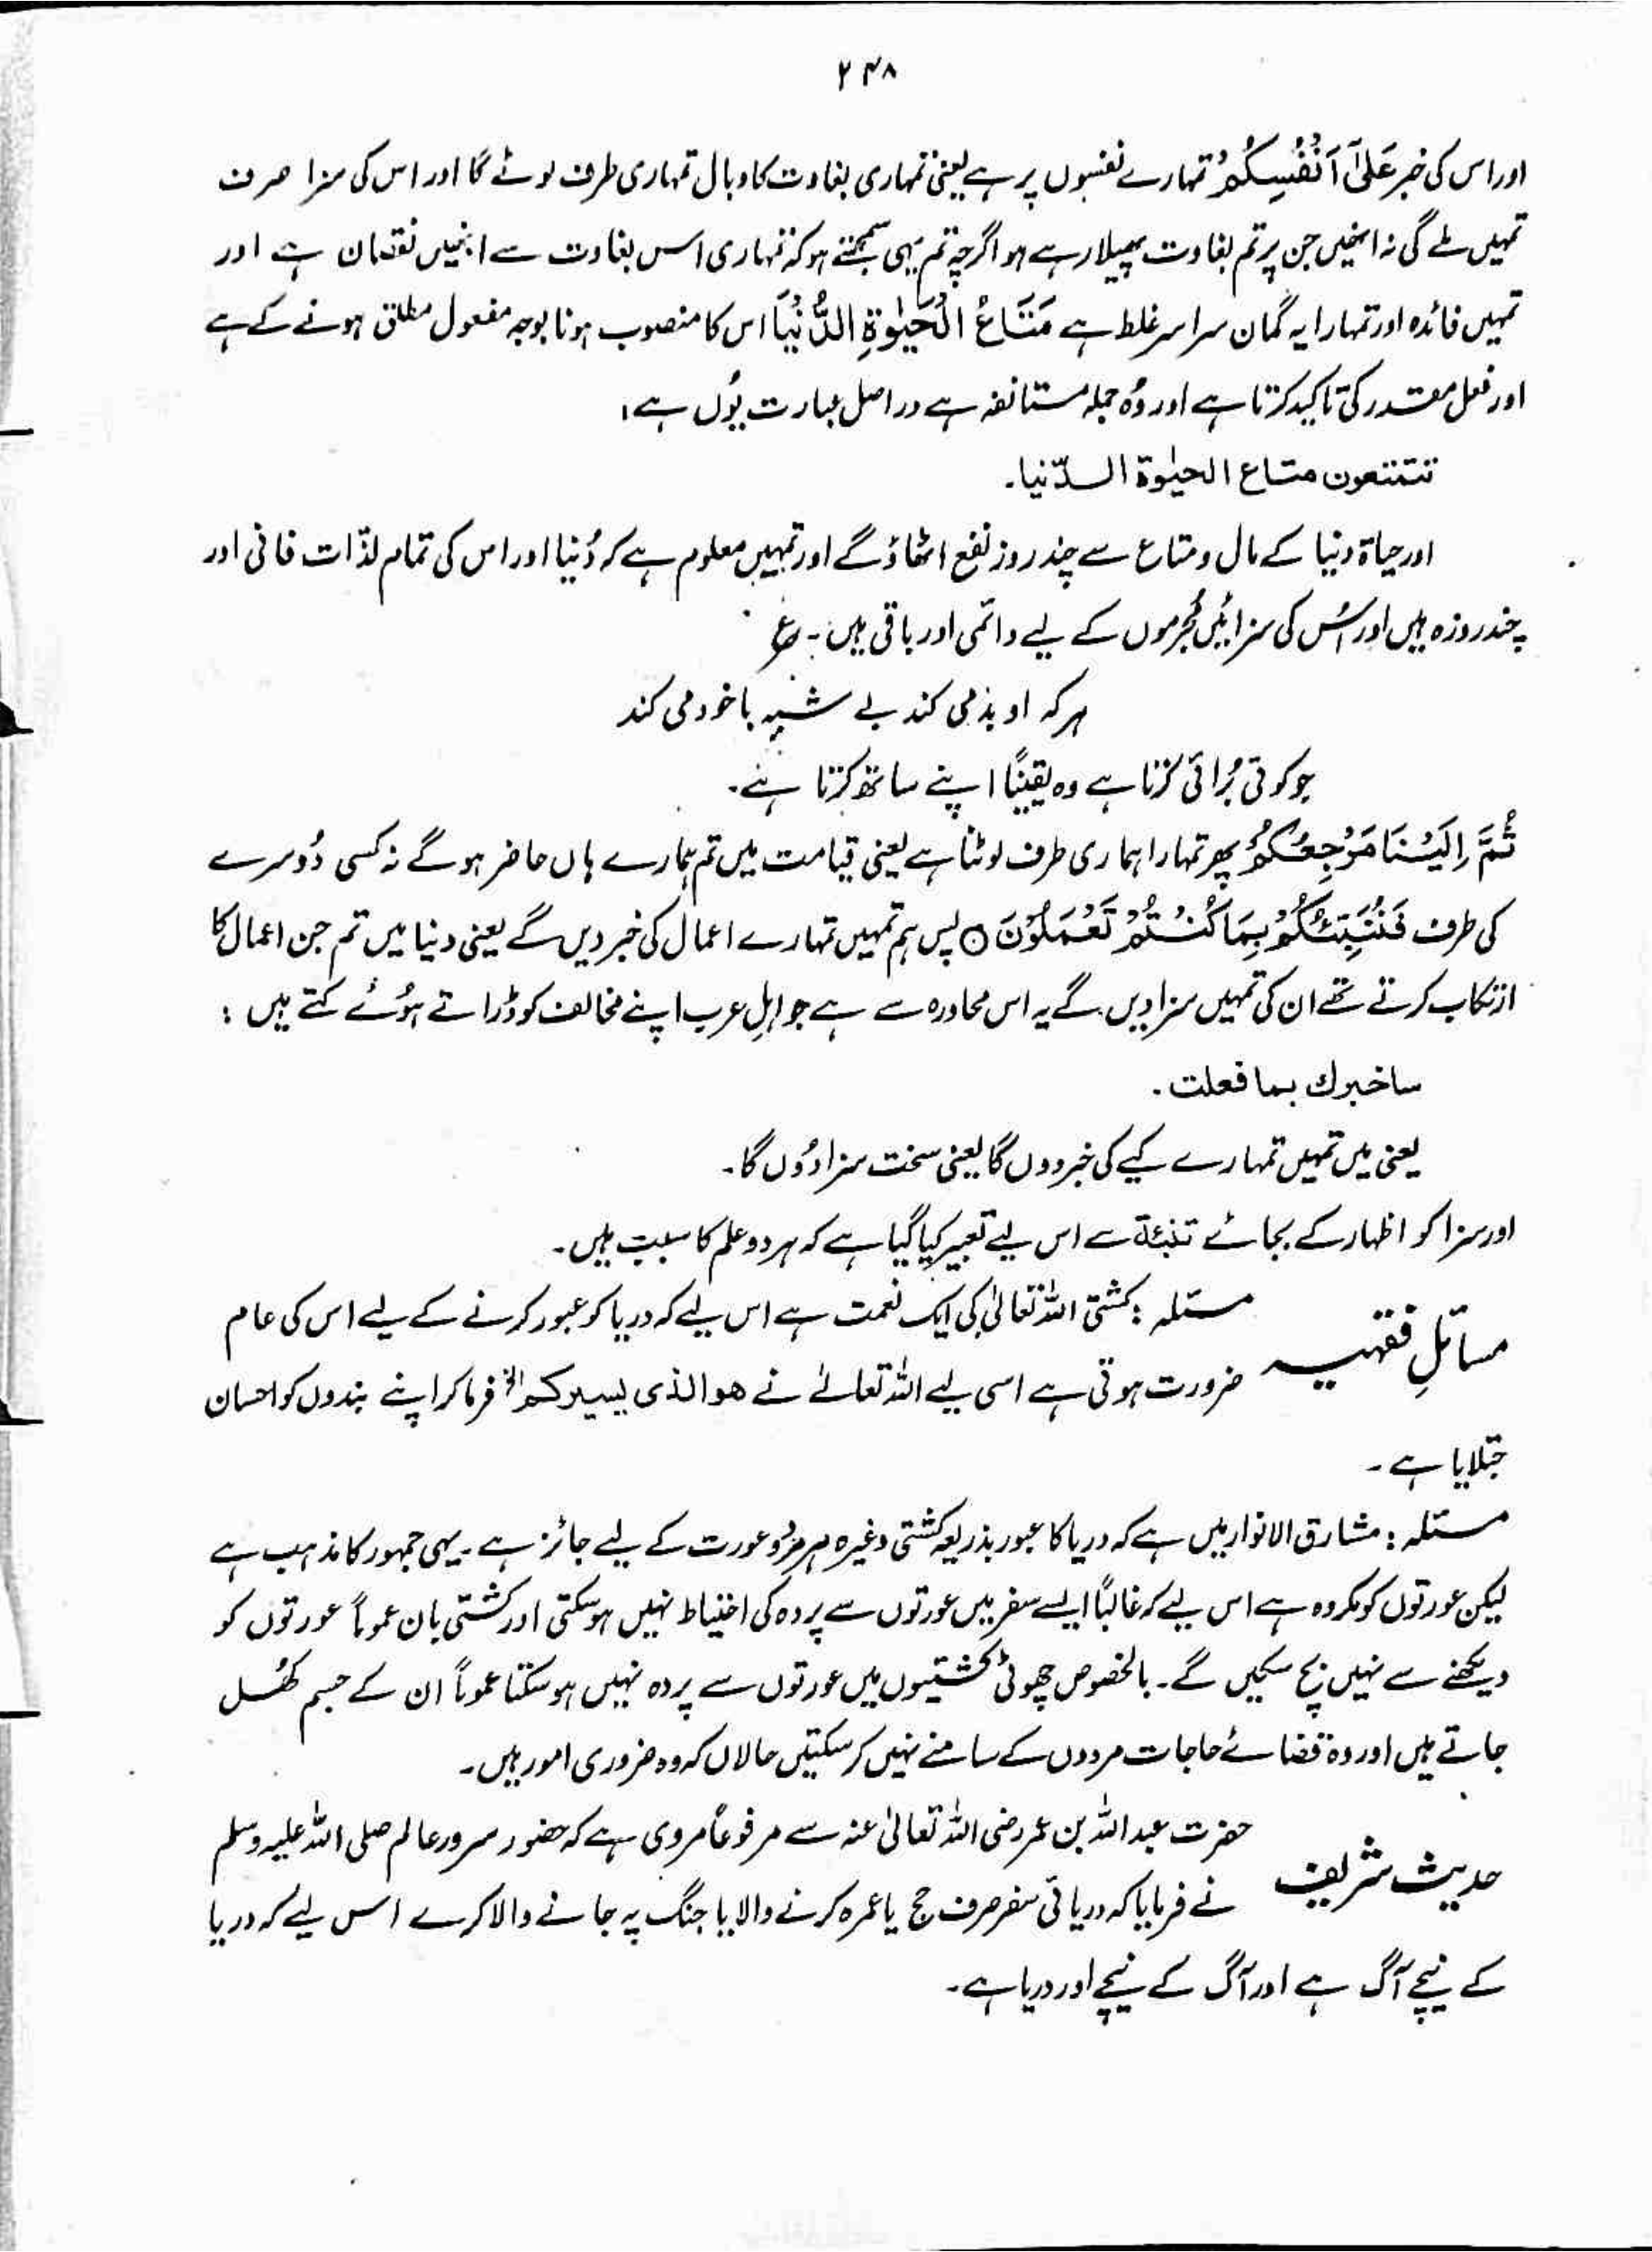 ۲۴۸
اور اس کی خبر عَلٰٓی اَنْفُسِکُمْ تمہارے نفسوں پر ہے یعنی تمہاری بغاوت کا وبال تمہاری طرف لوٹے گا اور اس کی سزا صرف
تمہیں ملے گی نہ انھیں جن پر تم بغاوت پھیلا رہے ہو اگرچہ تم یہی سمجھتے ہو کہ تمہاری اس بغاوت سے انہیں نقصان ہے اور
تمہیں فائدہ اور تمہارا یہ گمان سراسر غلط ہے مَتَاعُ الْحَیٰوۃِ الدُّنْیَا اس کا منصوب ہونا بوجہ مفعول مطلق ہونے کے ہے
اور فعل مقدر کی تاکید کرتا ہے اور وُہ جملہ مستانفہ ہے دراصل عبارت یُوں ہے :
تتمتعون متاع الحیٰوۃ الدّنیا۔
اور حیاۃ دنیا کے مال و متاع سے چند روز نفع اٹھاؤ گے اور تمہیں معلوم ہے کہ دُنیا اور اس کی تمام لذّات فانی اور
چند روزہ ہیں اور اُس کی سزائیں مُجرموں کے لیے دائمی اور باقی ہیں۔ ع
ہر کہ او بدمی کند بے شبہ با خود می کند
جو کوئی بُرائی کرتا ہے وہ یقینًا اپنے ساتھ کرتا ہے۔
ثُمَّ اِلَیْنَا مَرْجِعُکُمْ پھر تمہارا ہماری طرف لوٹنا ہے یعنی قیامت میں تم ہمارے ہاں حاضر ہو گے نہ کسی دُوسرے
کی طرف فَنُنَبِّئُکُمْ بِمَا کُنْتُمْ تَعْمَلُوْنَ ○ پس ہم تمہیں تمہارے اعمال کی خبر دیں گے یعنی دنیا میں تم جن اعمال کا
ارتکاب کرتے تھے ان کی تمہیں سزا دیں گے یہ اس محاورہ سے ہے جو اہلِ عرب اپنے مخالف کو ڈراتے ہُوئے کہتے ہیں :
ساخبرك بما فعلت۔
یعنی میں تمہیں تمہارے کیے کی خبر دوں گا یعنی سخت سزا دُوں گا۔
اور سزا کو اظہار کے بجائے تنبئۃ سے اس لیے تعبیر کیا گیا ہے کہ ہر دو علم کا سبب ہیں۔
مسائلِ فقہیہ
مسئلہ : کشتی اللہ تعالیٰ کی ایک نعمت ہے اس لیے کہ دریا کو عبور کرنے کے لیے اس کی عام
ضرورت ہوتی ہے اسی لیے اللہ تعالےٰ نے ھو الذی یسیرکم الخ فرما کر اپنے بندوں کو احسان
جتلایا ہے۔
مسئلہ : مشارق الانوار میں ہے کہ دریا کا عبور بذریعہ کشتی وغیرہ ہر مرد و عورت کے لیے جائز ہے۔ یہی جمہور کا مذہب ہے
لیکن عورتوں کو مکروہ ہے اس لیے کہ غالبًا ایسے سفر میں عورتوں سے پردہ کی احتیاط نہیں ہو سکتی اور کشتی بان عمومًا عورتوں کو
دیکھنے سے نہیں بچ سکیں گے۔ بالخصوص چھوٹی کشتیوں میں عورتوں سے پردہ نہیں ہو سکتا عمومًا ان کے جسم کھُل
جاتے ہیں اور وہ قضائے حاجات مردوں کے سامنے نہیں کر سکتیں حالاں کہ وہ ضروری امور ہیں۔
حدیث شریف
حضرت عبد اللہ بن عمر رضی اللہ تعالیٰ عنہ سے مرفوعًا مروی ہے کہ حضور سرور عالم صلی اللہ علیہ وسلم
نے فرمایا کہ دریائی سفر صرف حج یا عمرہ کرنے والا یا جنگ پہ جانے والا کرے اس لیے کہ دریا
کے نیچے آگ ہے اور آگ کے نیچے اور دریا ہے۔